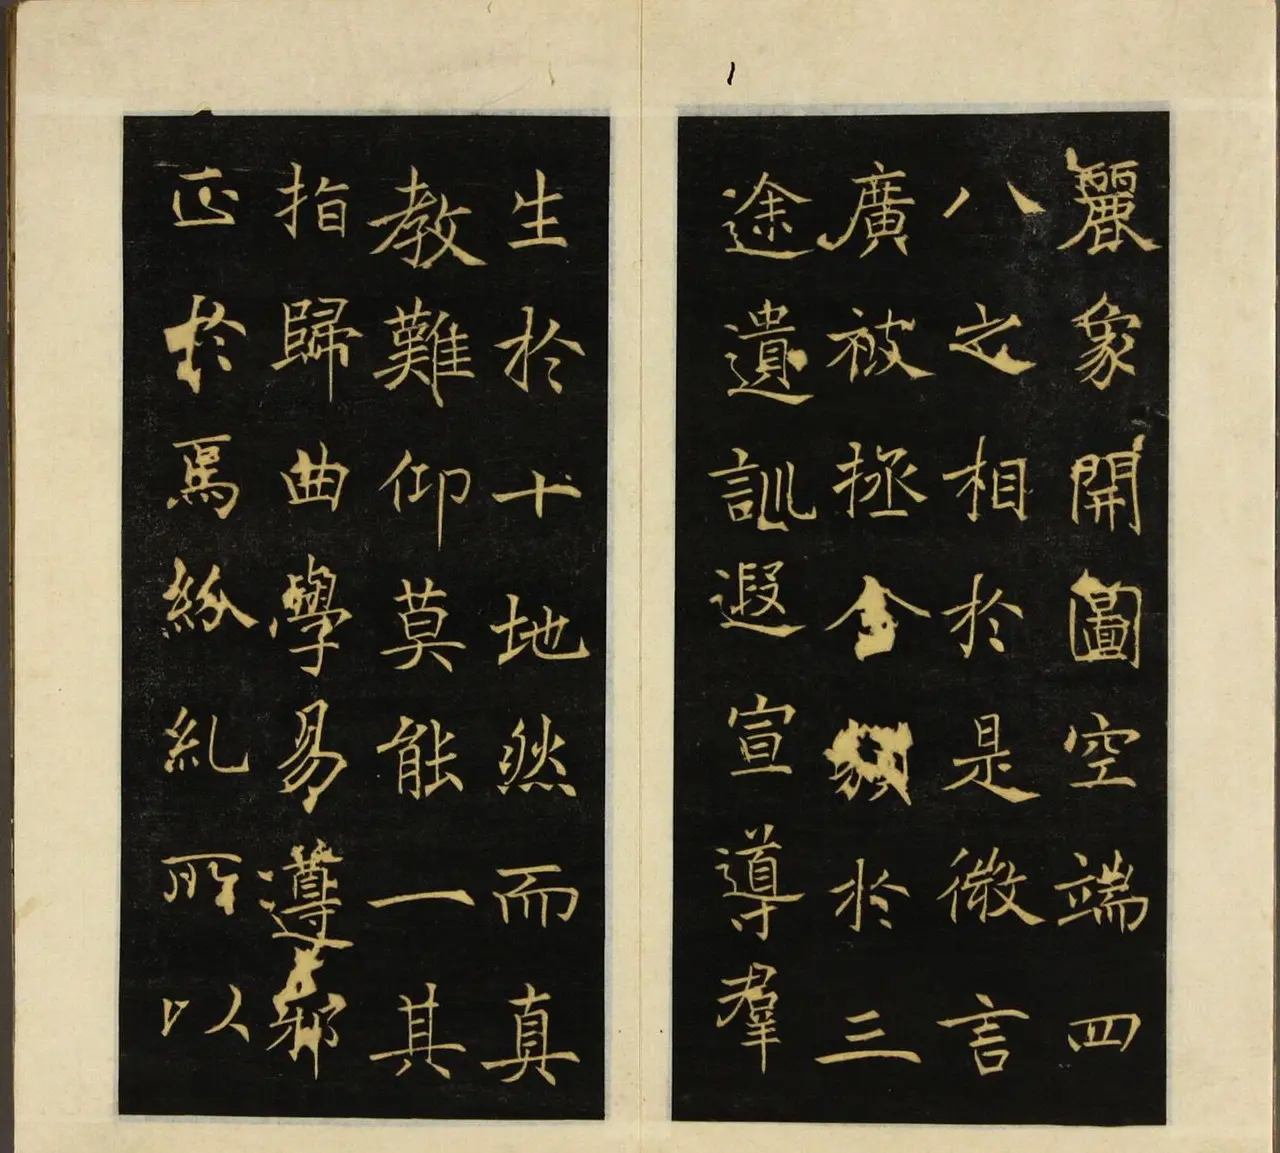 麗象開圖空端四
八之相於是微言
廣被拯含類於三
途遺訓遐宣導羣
生於十地然而真
教難仰莫能一其
指歸曲學易遵邪
正於焉紛糺所以